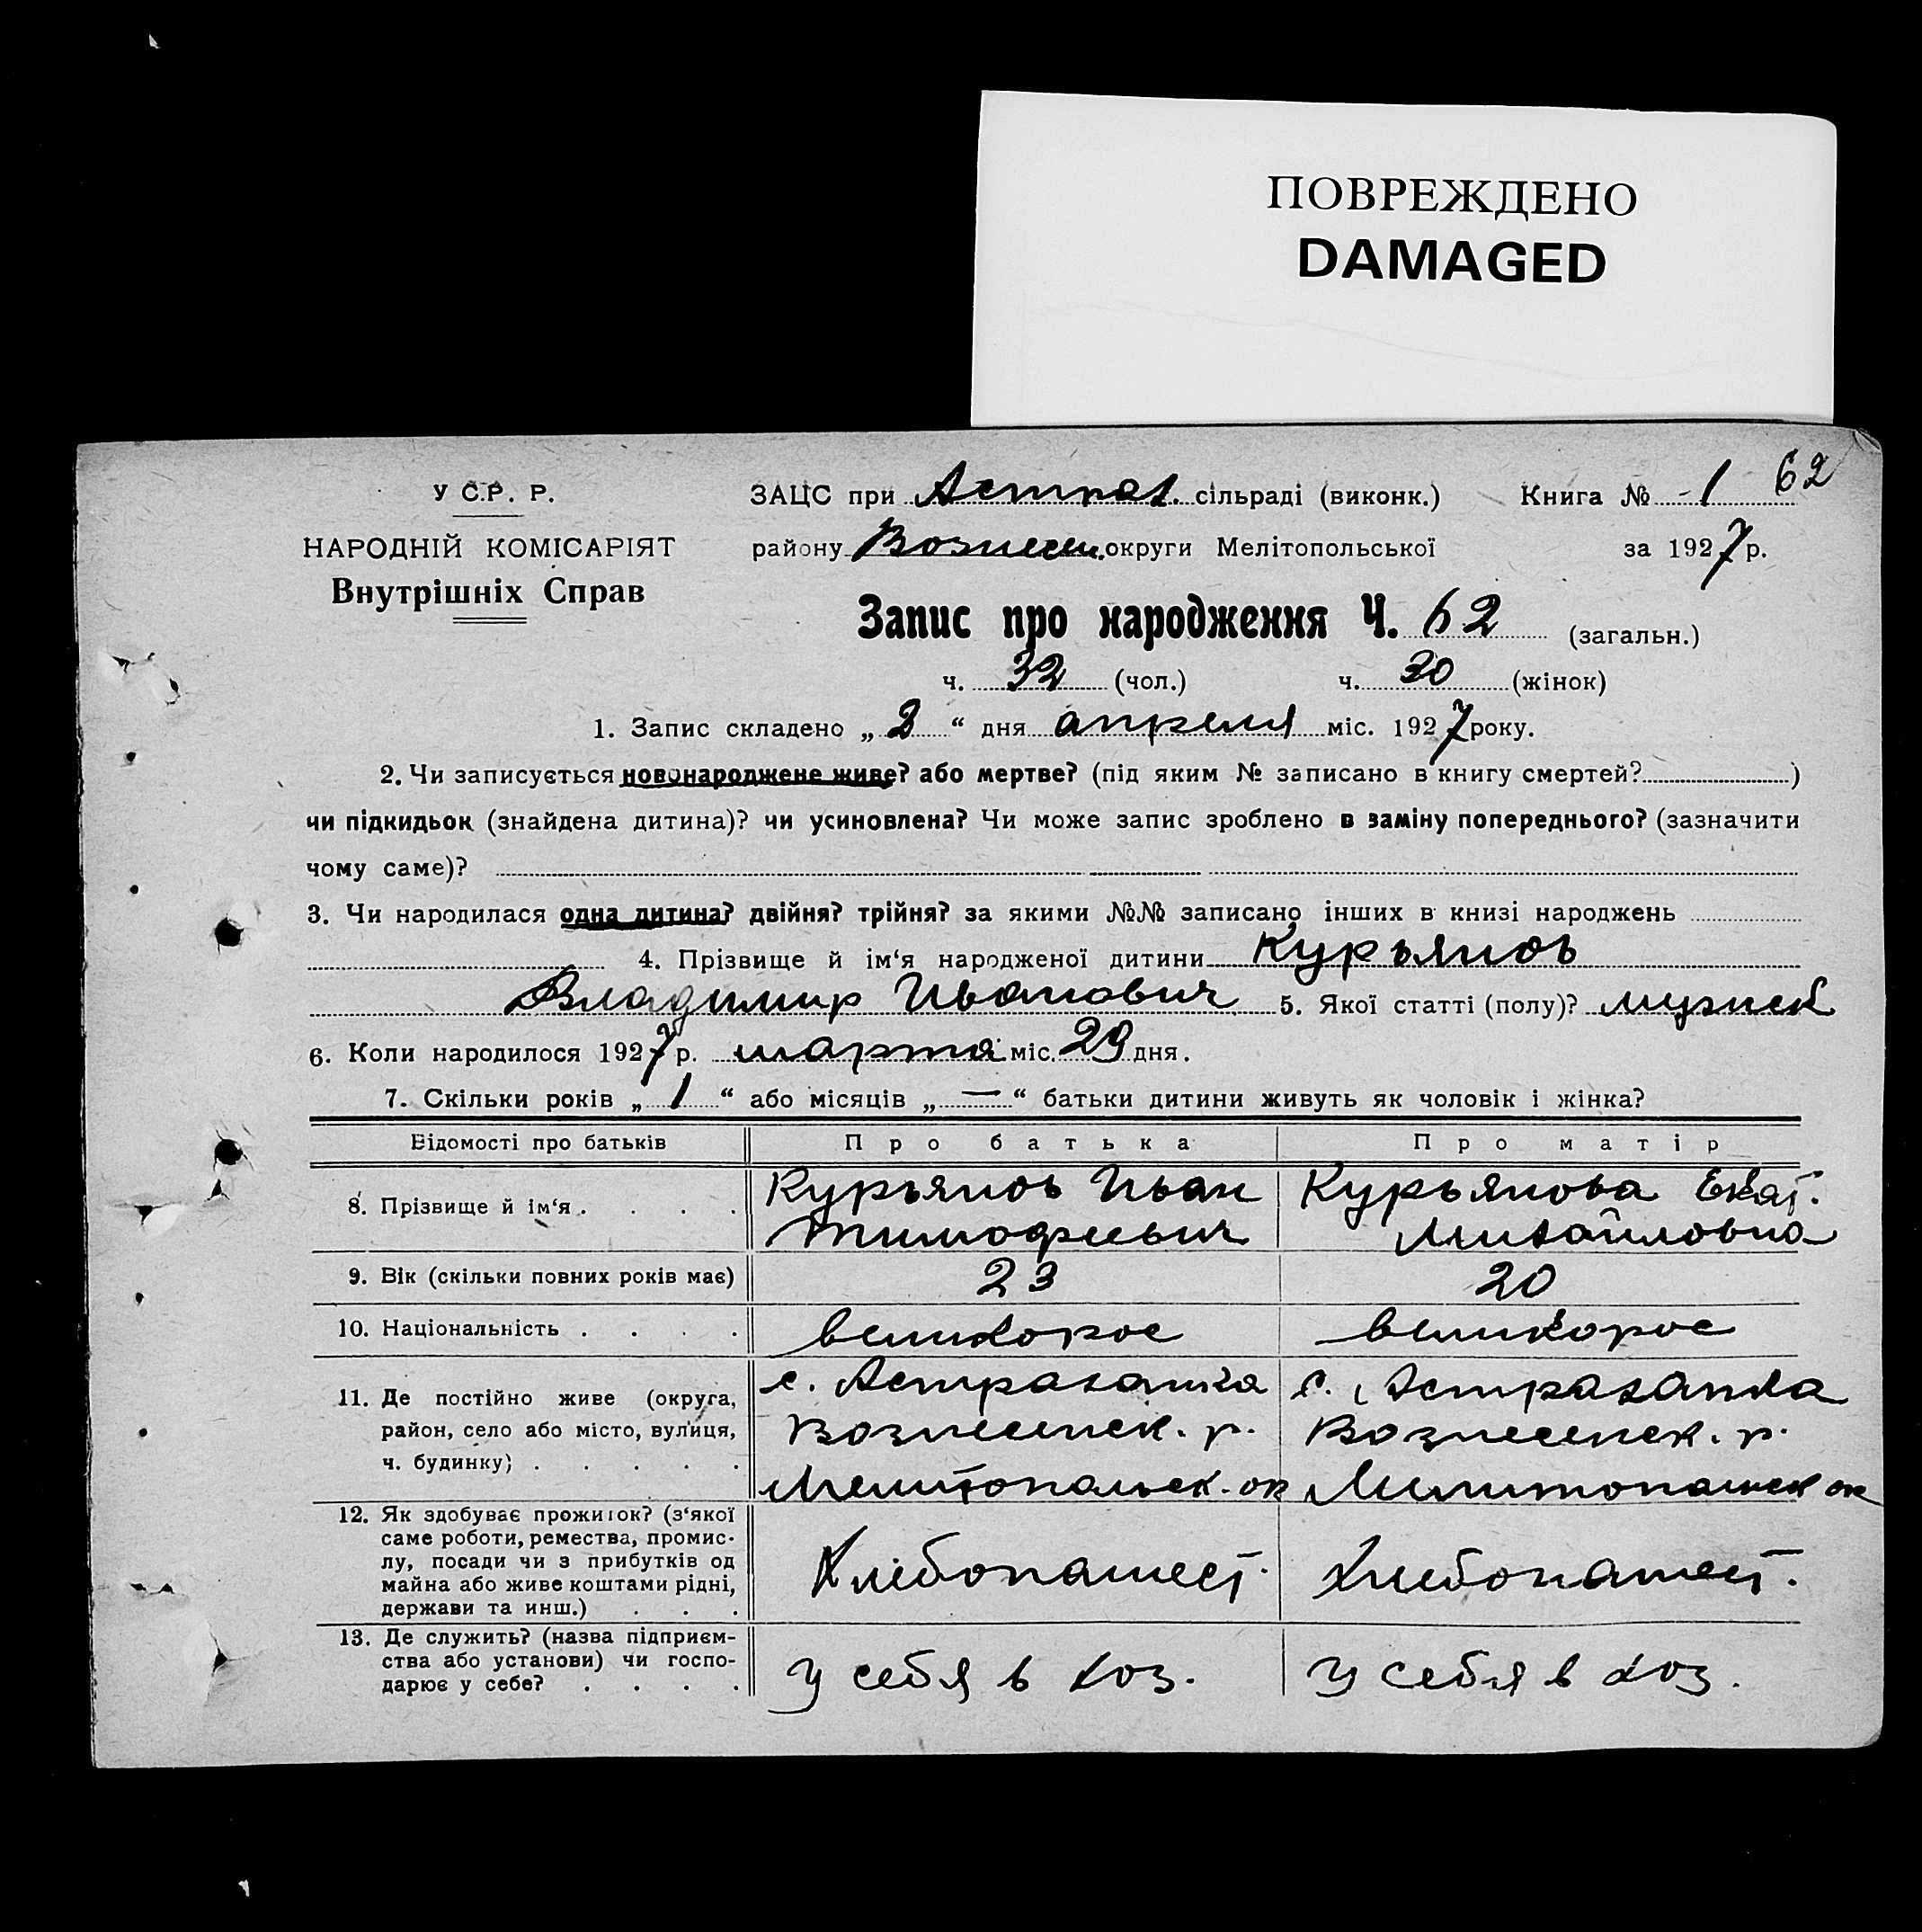 ПОВРЕЖДЕНО
DAMAGED
62
У С.Р. Р.
ЗАЦС при Астрах. сільраді (виконк.) Книга № 1
НАРОДНІЙ КОМІСАРІЯТ
району Вознесен. округи Мелітопольської за 1927 р.
Внутрішніх Справ
Запис про народження Ч. 62 (загальн.)
ч. 32 (чол.) ч. 30 (жінок)
1. Запис складено „ 2 “ дня апреля міс. 1927 року.
2. Чи записується новонароджене живе? або мертве? (під яким № записано в книгу смертей? )
чи підкидьок (знайдена дитина)? чи усиновлена? Чи може запис зроблено в заміну попереднього? (зазначити
чому саме)?
3. Чи народилася одна дитина? двійня? трійня? за якими №№ записано інших в книзі народжень
4. Прізвище й ім‘я народженої дитини Курьянов
Владимир Иванович 5. Якої статті (полу)? мужск
6. Коли народилося 1927 р. марта міс. 29 дня.
7. Скільки років „ 1 “ або місяців „ — “ батьки дитини живуть як чоловік і жінка?
Відомості про батьків Про батька Про матір
8. Прізвище й ім‘я . . . . Курьянов Иван Тимофеевич Курьянова Екат. Михайловна
9. Вік (скільки повних років має) 23 20
10. Національність . . . . великорос великорос
11. Де постійно живе (округа, район, село або місто, вулиця, ч. будинку) . . . . . с. Астраханка Вознесенск. р. Мелитопольск. ок с. Астраханка Вознесенск. р. Мелитопольск ок
12. Як здобуває прожиток? (з‘якої саме роботи, ремества, промис-
лу, посади чи з прибутків од майна або живе коштами рідні, держави та инш.) . . . Хлебопашест. Хлебопашест.
13. Де служить? (назва підприєм-
ства або установи) чи госпо-
дарює у себе? . . . . У себя в хоз. У себя в хоз.